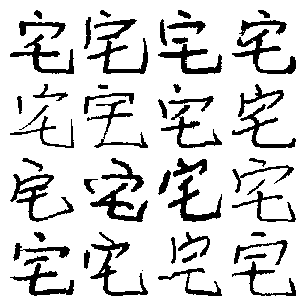 宅宅宅宅
宅宅宅宅
宅宅宅宅
宅宅宅宅